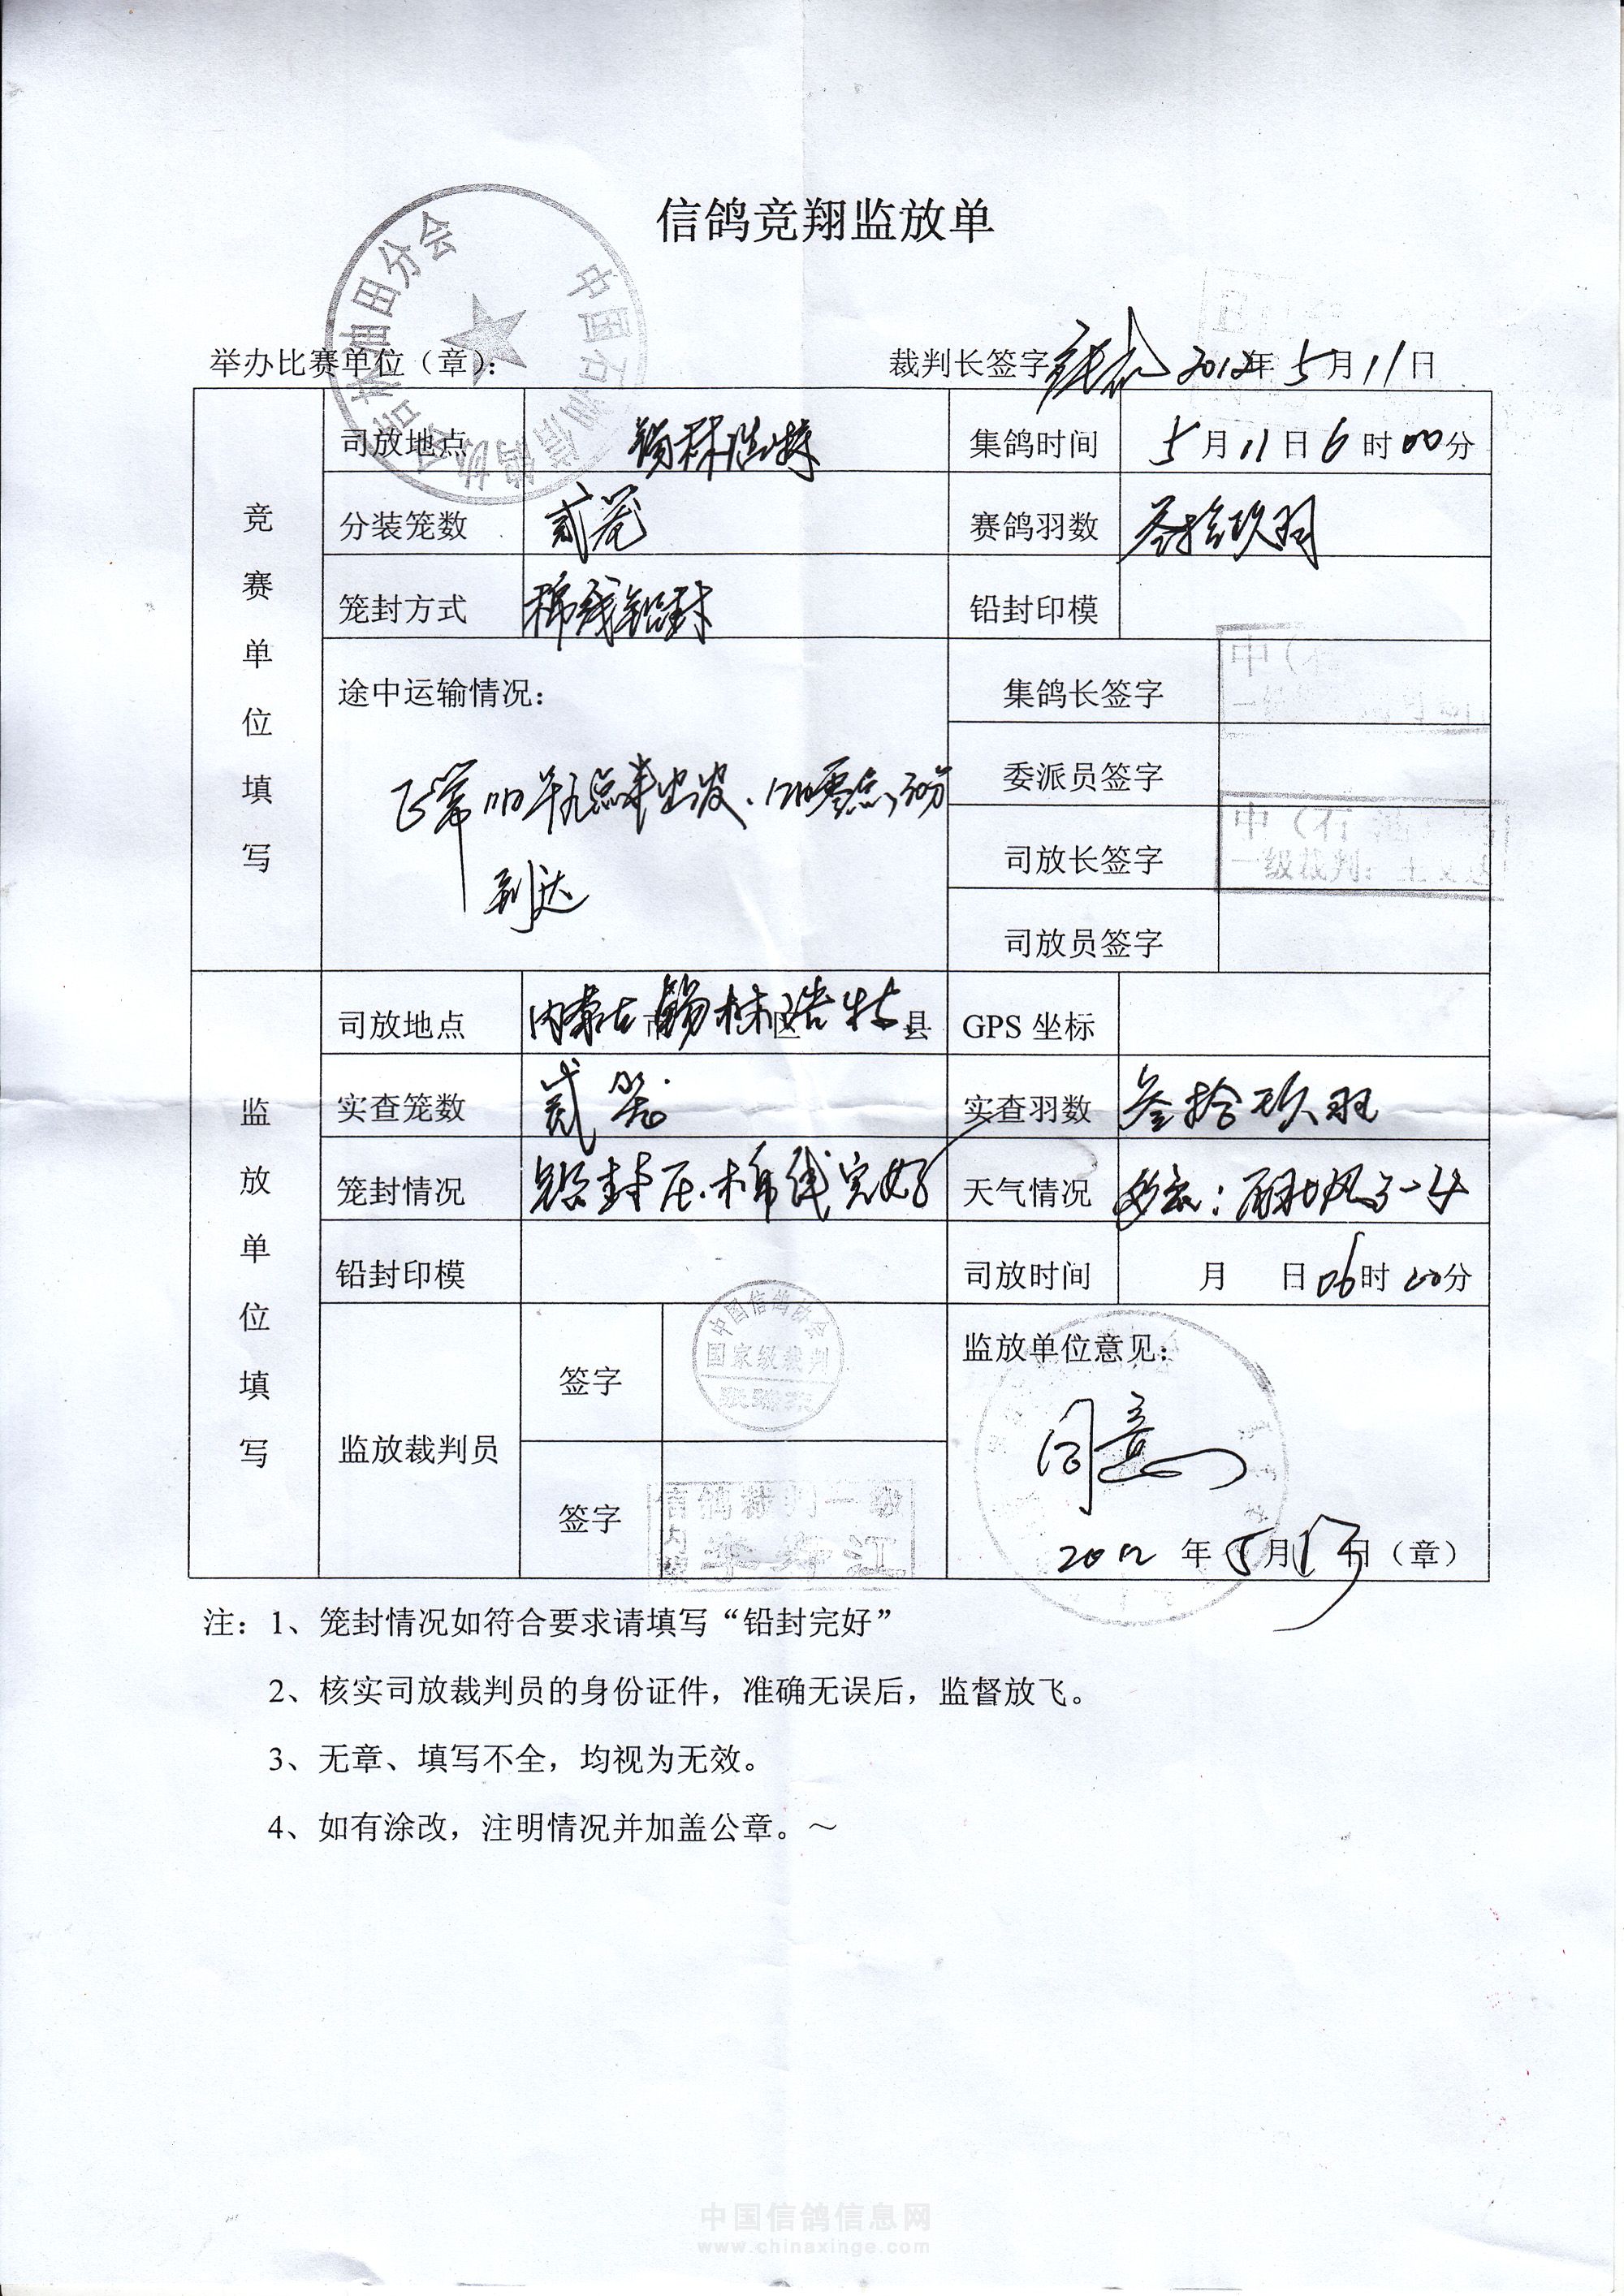 信鸽竞翔监放单
中国石油信鸽协会吉林油田分会
举办比赛单位（章）： 裁判长签字 2012年 5月11日
竞赛单位填写
司放地点 锡林浩特 集鸽时间 5月11日6时00分
分装笼数 贰笼 赛鸽羽数 叁拾玖羽
笼封方式 棉线铅封 铅封印模
途中运输情况： 集鸽长签字
正常 11日 点半出发、12日零点 分 委派员签字
到达 司放长签字
一级裁判：王
司放员签字
监放单位填写
司放地点 内蒙古市锡林区浩特县 GPS 坐标
实查笼数 贰笼 实查羽数 叁拾玖羽
笼封情况 铅封压.棉线完好 天气情况 多云：西北风3-4
铅封印模 司放时间 月 日06时00分
监放裁判员 签字 中国信鸽协会 国家级裁判 监放单位意见：
同意
签字 信鸽裁判一级 江
2012年5月13日（章）
注：1、笼封情况如符合要求请填写“铅封完好”
2、核实司放裁判员的身份证件，准确无误后，监督放飞。
3、无章、填写不全，均视为无效。
4、如有涂改，注明情况并加盖公章。～
中国信鸽信息网
www.chinaxinge.com